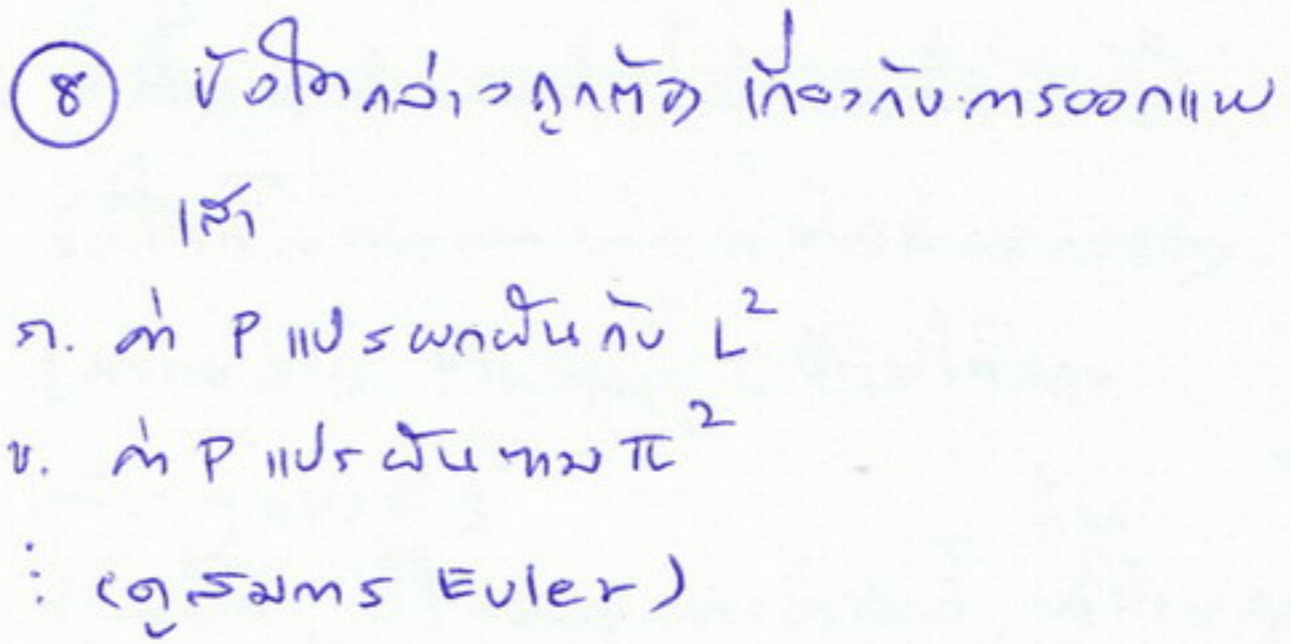 8 ข้อใดกล่าวถูกต้อง เกี่ยวกับการออกแบบ
เสา
ก. ค่า P แปรผกผันกับ L²
ข. ค่า P แปรผันตาม π²
: (ดูสมการ Euler)